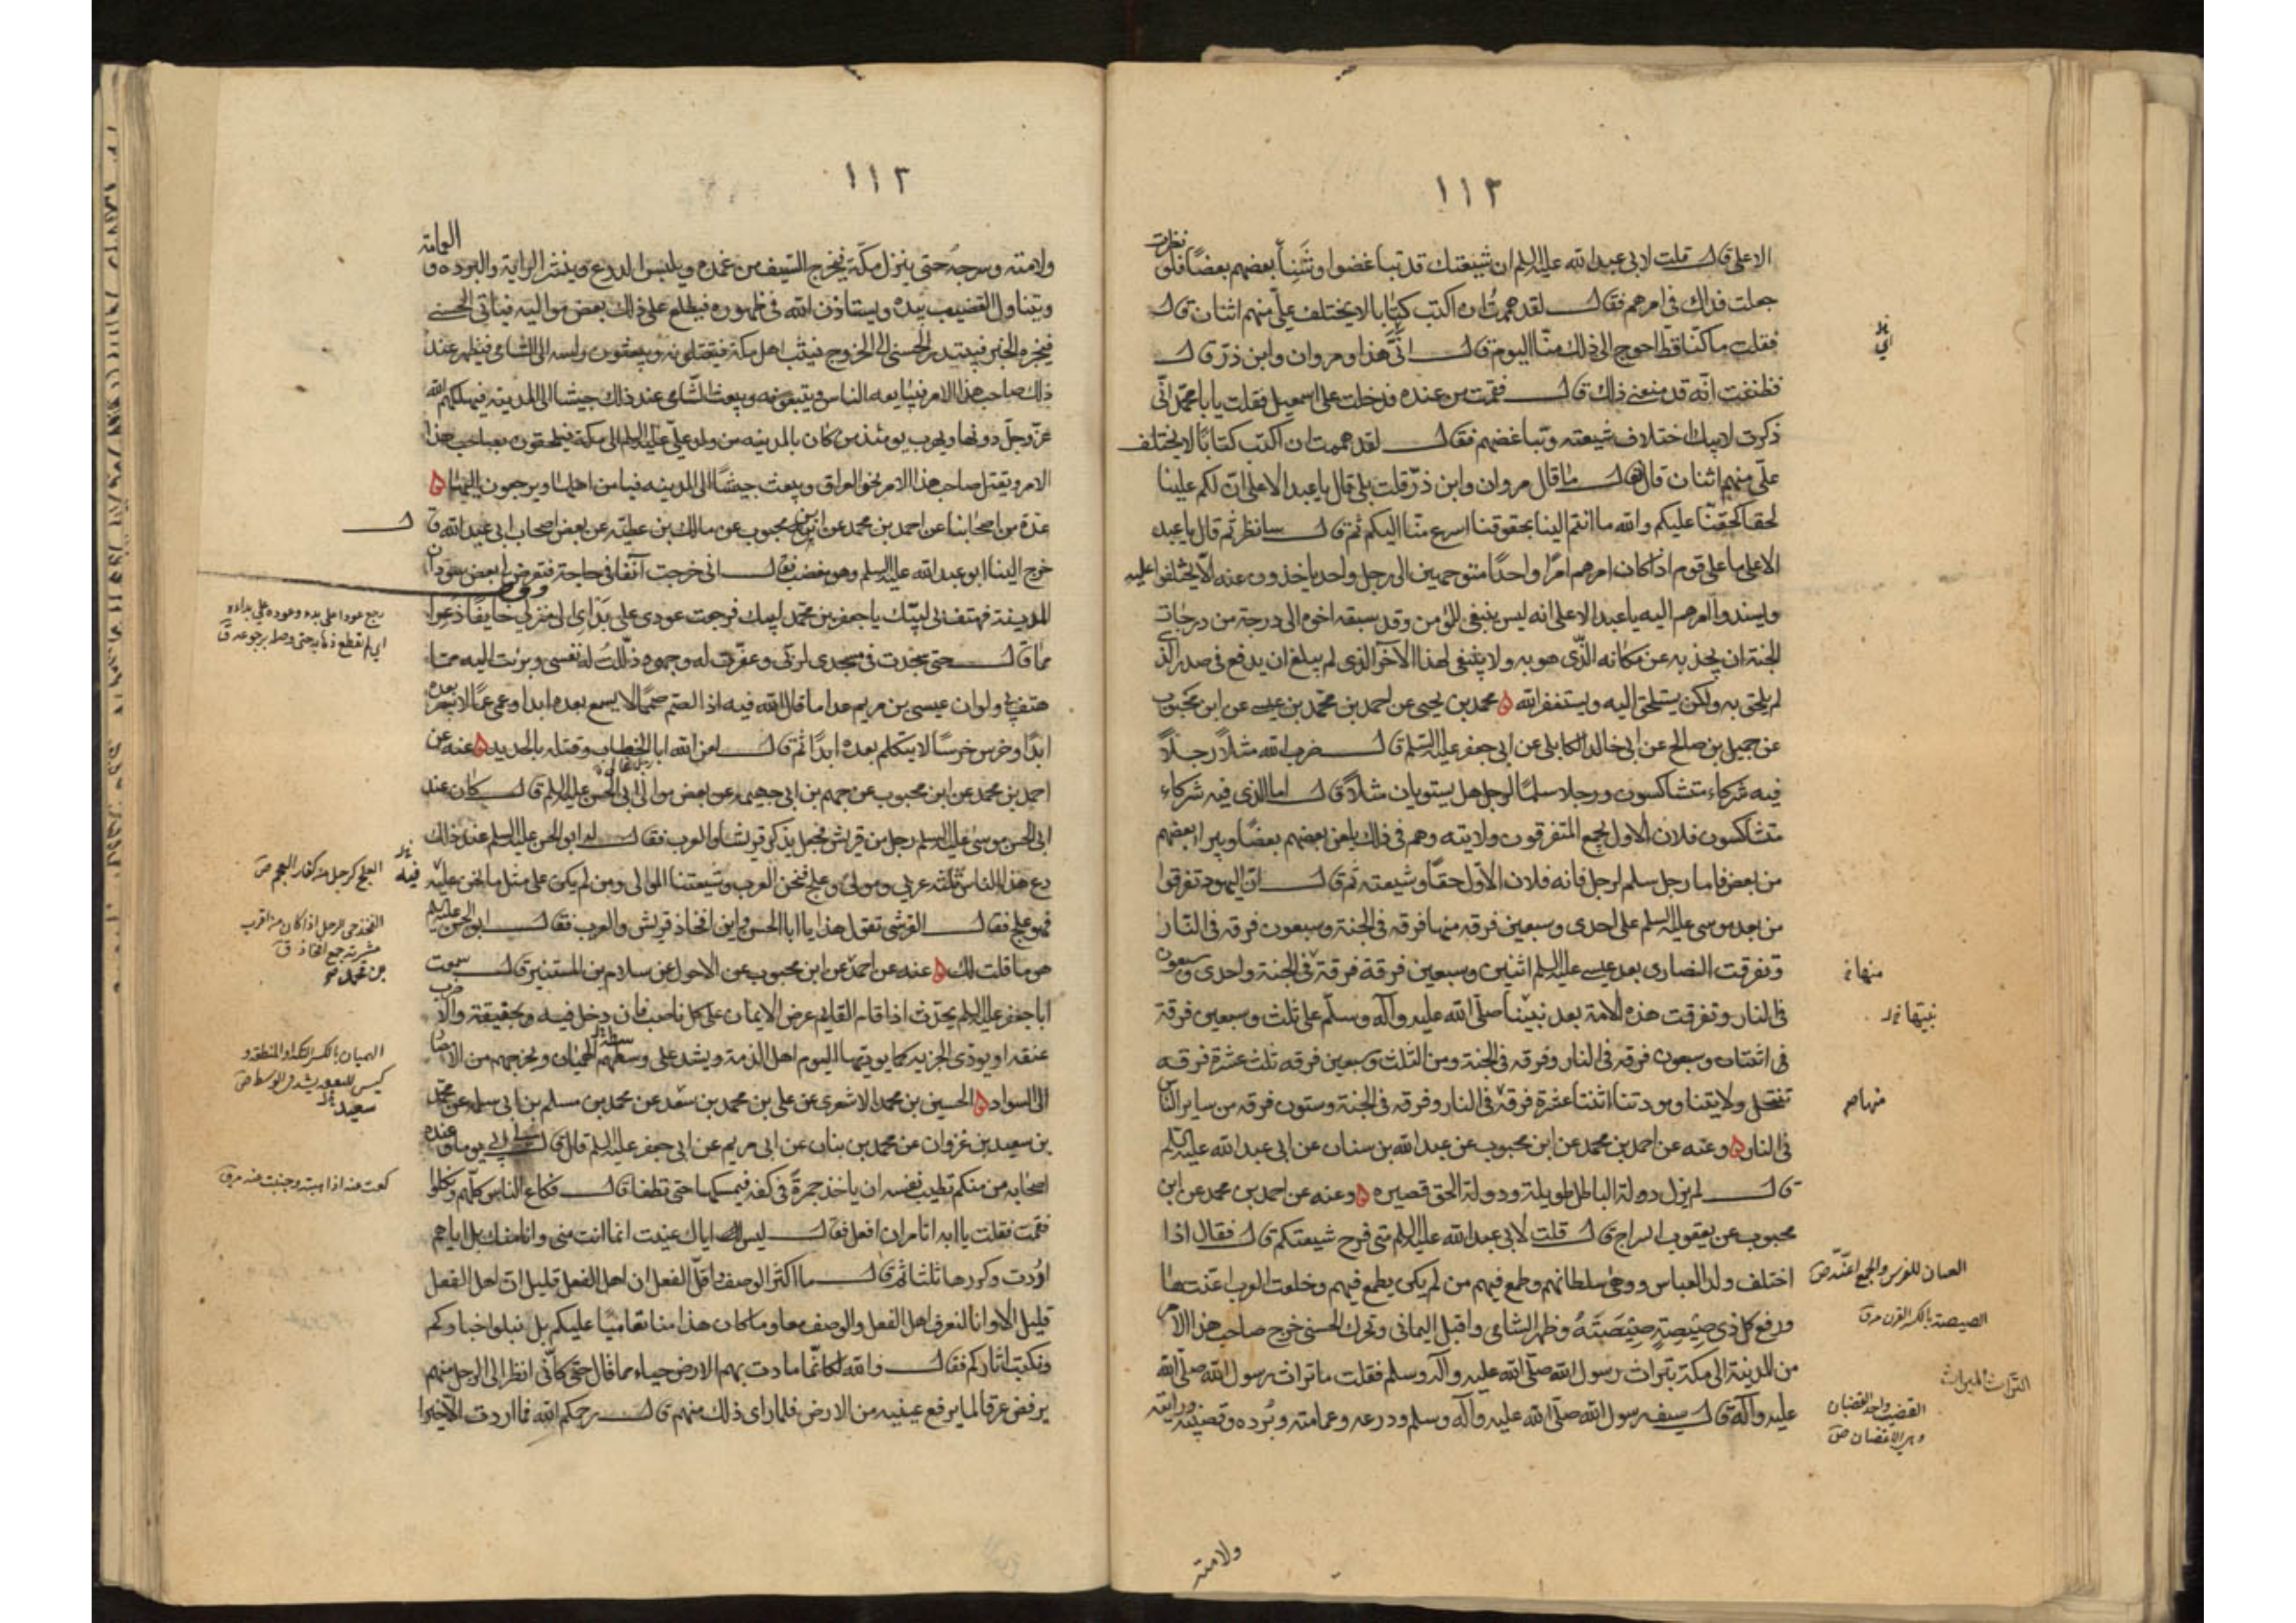 ١١٢
الاعلى قال قلت لابى عبد الله عليه السلم ان شيعتك قد تباغضوا وشنئ بعضهم بعضا فلو نظرت
جعلت فداك فى امرهم فقال لقد هممت ان اكتب كتابا لا يختلف علىّ منهم اثنان قال
فقلت ما كنا قط احوج الى ذلك منا اليوم قال ثم قال انّى هذا ومروان وابن ذرّ قال
فظننت انه قد منعنى ذلك قال فقمت من عنده فدخلت على اسمعيل فقلت يا با محمد انى
ذكرت لابيك اختلاف شيعته وتباغضهم فقال لقد هممت ان اكتب كتابا لا يختلف
علىّ منهم اثنان قال فقال ما قال مروان وابن ذرّ قلت بلى قال يا عبد الاعلى ان لكم علينا
لحقا كحقنا عليكم والله ما انتم الينا بحقوقنا اسرع منا اليكم ثم قال سانظر ثم قال يا عبد
الاعلى ما على قوم اذا كان امرهم امرا واحدا متوجهين الى رجل واحد ياخذون عنه الّا يختلفوا عليه
ويسندوا امرهم اليه يا عبد الاعلى انه ليس ينبغى للمؤمن وقد سبقه اخوه الى درجة من درجات
الجنة ان يجذبه عن مكانه الذى هو به ولا ينبغى لهذا الآخر الذى لم يبلغ ان يدفع فى صدر الذى
لم يلحق به ولكن يستلحق اليه ويستغفر الله ه محمد بن يحيى عن احمد بن محمد بن عيسى عن ابن محبوب
عن جميل بن صالح عن ابى خالد الكابلى عن ابى جعفر عليه السلم قال ضرب الله مثلا رجلا
فيه شركاء متشاكسون ورجلا سلما لرجل هل يستويان مثلا قال اما الذى فيه شركاء
متشاكسون فلان الاول يجمع المتفرقون ولايته وهم فى ذلك يلعن بعضهم بعضا ويبرا بعضهم
من بعض فاما رجل سلم لرجل فانه فلان الاول حقا وشيعته ثم قال ان اليهود تفرقوا
من بعد موسى عليه السلم على احدى وسبعين فرقه منها فرقه فى الجنة وسبعون فرقه فى النار
وتفرقت النصارى بعد عيسى عليه السلم اثنين وسبعين فرقة فرقة فى الجنة واحدى وسبعون
منها
فى النار وتفرقت هذه الامة بعد نبينا صلى الله عليه وآله وسلم على ثلث وسبعين فرقة
نبيها
فى اثنتان وسبعون فرقه فى النار وفرقه فى الجنة ومن الثلث وسبعين فرقه ثلث عشرة فرقه
تنتحل ولايتنا ومودتنا اثنتا عشرة فرقة فى النار وفرقه فى الجنة وستون فرقه من ساير الناس
منها
فى النار ه وعنه عن احمد بن محمد عن ابن محبوب عن عبد الله بن سنان عن ابى عبد الله عليه السلم
قال لم يزل دولة الباطل طويلة ودولة الحق قصيره ه وعنه عن احمد بن محمد عن ابن
محبوب عن يعقوب السراج قال قلت لابى عبد الله عليه السلم متى فرح شيعتكم قال فقال اذا
اختلف ولد العباس ووهى سلطانهم وطمع فيهم من لم يكن يطمع فيهم وخلعت العرب اعنتها
العنان للفرس والجمع اعنّة ص
ورفع كل ذى صيصية صيصيته وظهر الشامى واقبل اليمانى وتحرك الحسنى خرج صاحب هذا الامر
الصيصة بالكسر القرن
من المدينة الى مكة بتراث رسول الله صلى الله عليه وآله وسلم فقلت ما تراث رسول الله صلى الله
التراث الميراث
عليه وآله قال سيف رسول الله صلى الله عليه وآله وسلم ودرعه وعمامته وبرده وقضيبه ورايته
القضيب واحد القضبان
وهى الاغصان ص
ولامته
١١٢
ولامته وسرجه حتى ينزل مكة يخرج السيف من غمده ويلبس الدرع وينشر الراية والبرده والعمامة
ويتناول القضيب بيده ويستاذن الله فى ظهوره فيطلع على ذلك بعض مواليه فياتى الحسنى
فيخبره الخبر فيبتدر الحسنى الى الخروج فيثب اهل مكة فيقتلونه ويبعثون راسه الى الشامى فيظهر عند
ذلك صاحب هذا الامر فيبايعه الناس ويتبعونه ويبعث الشامى عند ذلك جيشا الى المدينة فيهلكهم الله
عز وجل دونها ويهرب يومئذ من كان بالمدينه من ولد علىّ عليه السلم الى مكة فيلحقون بصاحب هذا
الامر ويقبل صاحب هذا الامر نحو العراق ويبعث جيشا الى المدينه فيامن اهلها ويرجعون اليها ه
عدة من اصحابنا عن احمد بن محمد عن ابن محبوب عن مالك بن عطيه عن بعض اصحاب ابى عبد الله قال
خرج الينا ابو عبد الله عليه السلم وهو مغضب فقال انى خرجت آنفا فى حاجة فتعرض لى بعض سودان
المدينة فهتف بى لبيك يا جعفر بن محمد لبيك فرجعت عودى على بدئى الى منزلى خايفا ذعرا
رجع عودا على بدء وعوده على بدئه
اى لم يقطع ذهابه حتى وصله برجوعه ق
مما قال حتى سجدت فى مسجدى لربى وعفرت له وجهى وذللت له نفسى وبرئت اليه مما
هتف بى ولو ان عيسى بن مريم عدا ما قال الله فيه اذا لصم صما لا يسمع بعده ابدا وعمى عمى لا يبصر بعده
ابدا وخرس خرسا لا يتكلم بعده ابدا ثم قال لعن الله ابا الخطاب وقتله بالحديد ه عنه عن
احمد بن محمد عن ابن محبوب عن جهم بن ابى جهيمه عن بعض موالى ابى الحسن عليه السلم قال كان عند
ابى الحسن موسى عليه السلم رجل من قريش فجعل يذكر قريشا والعرب فقال له ابو الحسن عليه السلم عند ذلك
دع هذا الناس ثلثه عربى ومولى وعلج فنحن العرب وشيعتنا الموالى ومن لم يكن على مثل ما نحن عليه
فيه
العلج كرجل من كفار العجم ص
فهو علج فقال القرشى تقول هذا يا ابا الحسن فاين افخاذ قريش والعرب فقال ابو الحسن عليه السلم
الفخذ حى الرجل اذا كان من اقرب
عشيرته جمع افخاذ ق
هو ما قلت لك ه عنه عن احمد عن ابن محبوب عن الاحول عن سلام بن المستنير قال سمعت
ابا جعفر عليه السلم يحدث اذا قام القايم عرض الايمان على كل ناصب فان دخل فيه بحقيقة والا ضرب
عنقه او يودى الجزيه كما يوديها اليوم اهل الذمة ويشد على وسطهم الهميان ويخرجهم من الامصار
الهميان بالكسر التكة والمنطقة و
كيس للنفقة يشد فى الوسط ص
الى السواد ه الحسين بن محمد الاشعرى عن على بن محمد بن سعد عن محمد بن مسلم بن ابى سلمه عن محمد
سعيد
بن سعيد بن غزوان عن محمد بن بنان عن ابى مريم عن ابى جعفر عليه السلم قال قال ابى يوما وعنده
اصحابه من منكم تطيب نفسه ان ياخذ جمرة فى كفه فيمسكها حتى تطفا قال فكاع الناس كلهم ونكلوا
كعت عنه اذا هبته وجبنت عنه
فقمت فقلت يا ابه اتامر ان افعل فقال ليس اياك عنيت انما انت منى وانا منك بل اياهم
اردت وكررها ثلثا ثم قال ما اكثر الوصف واقل الفعل ان اهل الفعل قليل ان اهل الفعل
قليل الا وانا لنعرف اهل الفعل والوصف معا وما كان هذا منا تعاميا عليكم بل لنبلو اخباركم
ونكتب اثاركم فقال والله لكانما مادت بهم الارض حياء مما قال حتى كانى انظر الى الرجل منهم
يرفض عرقا ما يرفع عينيه من الارض فلما راى ذلك منهم قال رحمكم الله فما اردت الا خيرا